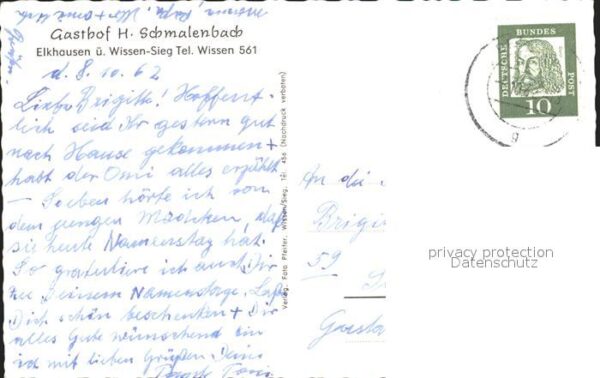 Gasthof H. Schmalenbach
Elkhausen ü. Wissen-Sieg Tel. Wissen 561
d. 8.10.62
Liebe Brigitte! Hoffent-
lich seid Ihr gestern gut
nach Hause gekommen +
habt der Omi alles erzählt
– Soeben hörte ich von
dem jungen Mädchen, daß
sie heute Namenstag hat.
So gratuliere ich auch Dir
zu Deinem Namenstage. Laß
Dich schön beschenken + Dir
alles Gute wünschend bin
ich mit lieben Grüßen Deine
Tante Toni
Verlag: Foto Pfeifer, Wissen/Sieg, Tel. 456 (Nachdruck verboten)
DEUTSCHE BUNDES POST
10
g
An die
Brigi
59
privacy protection
Datenschutz